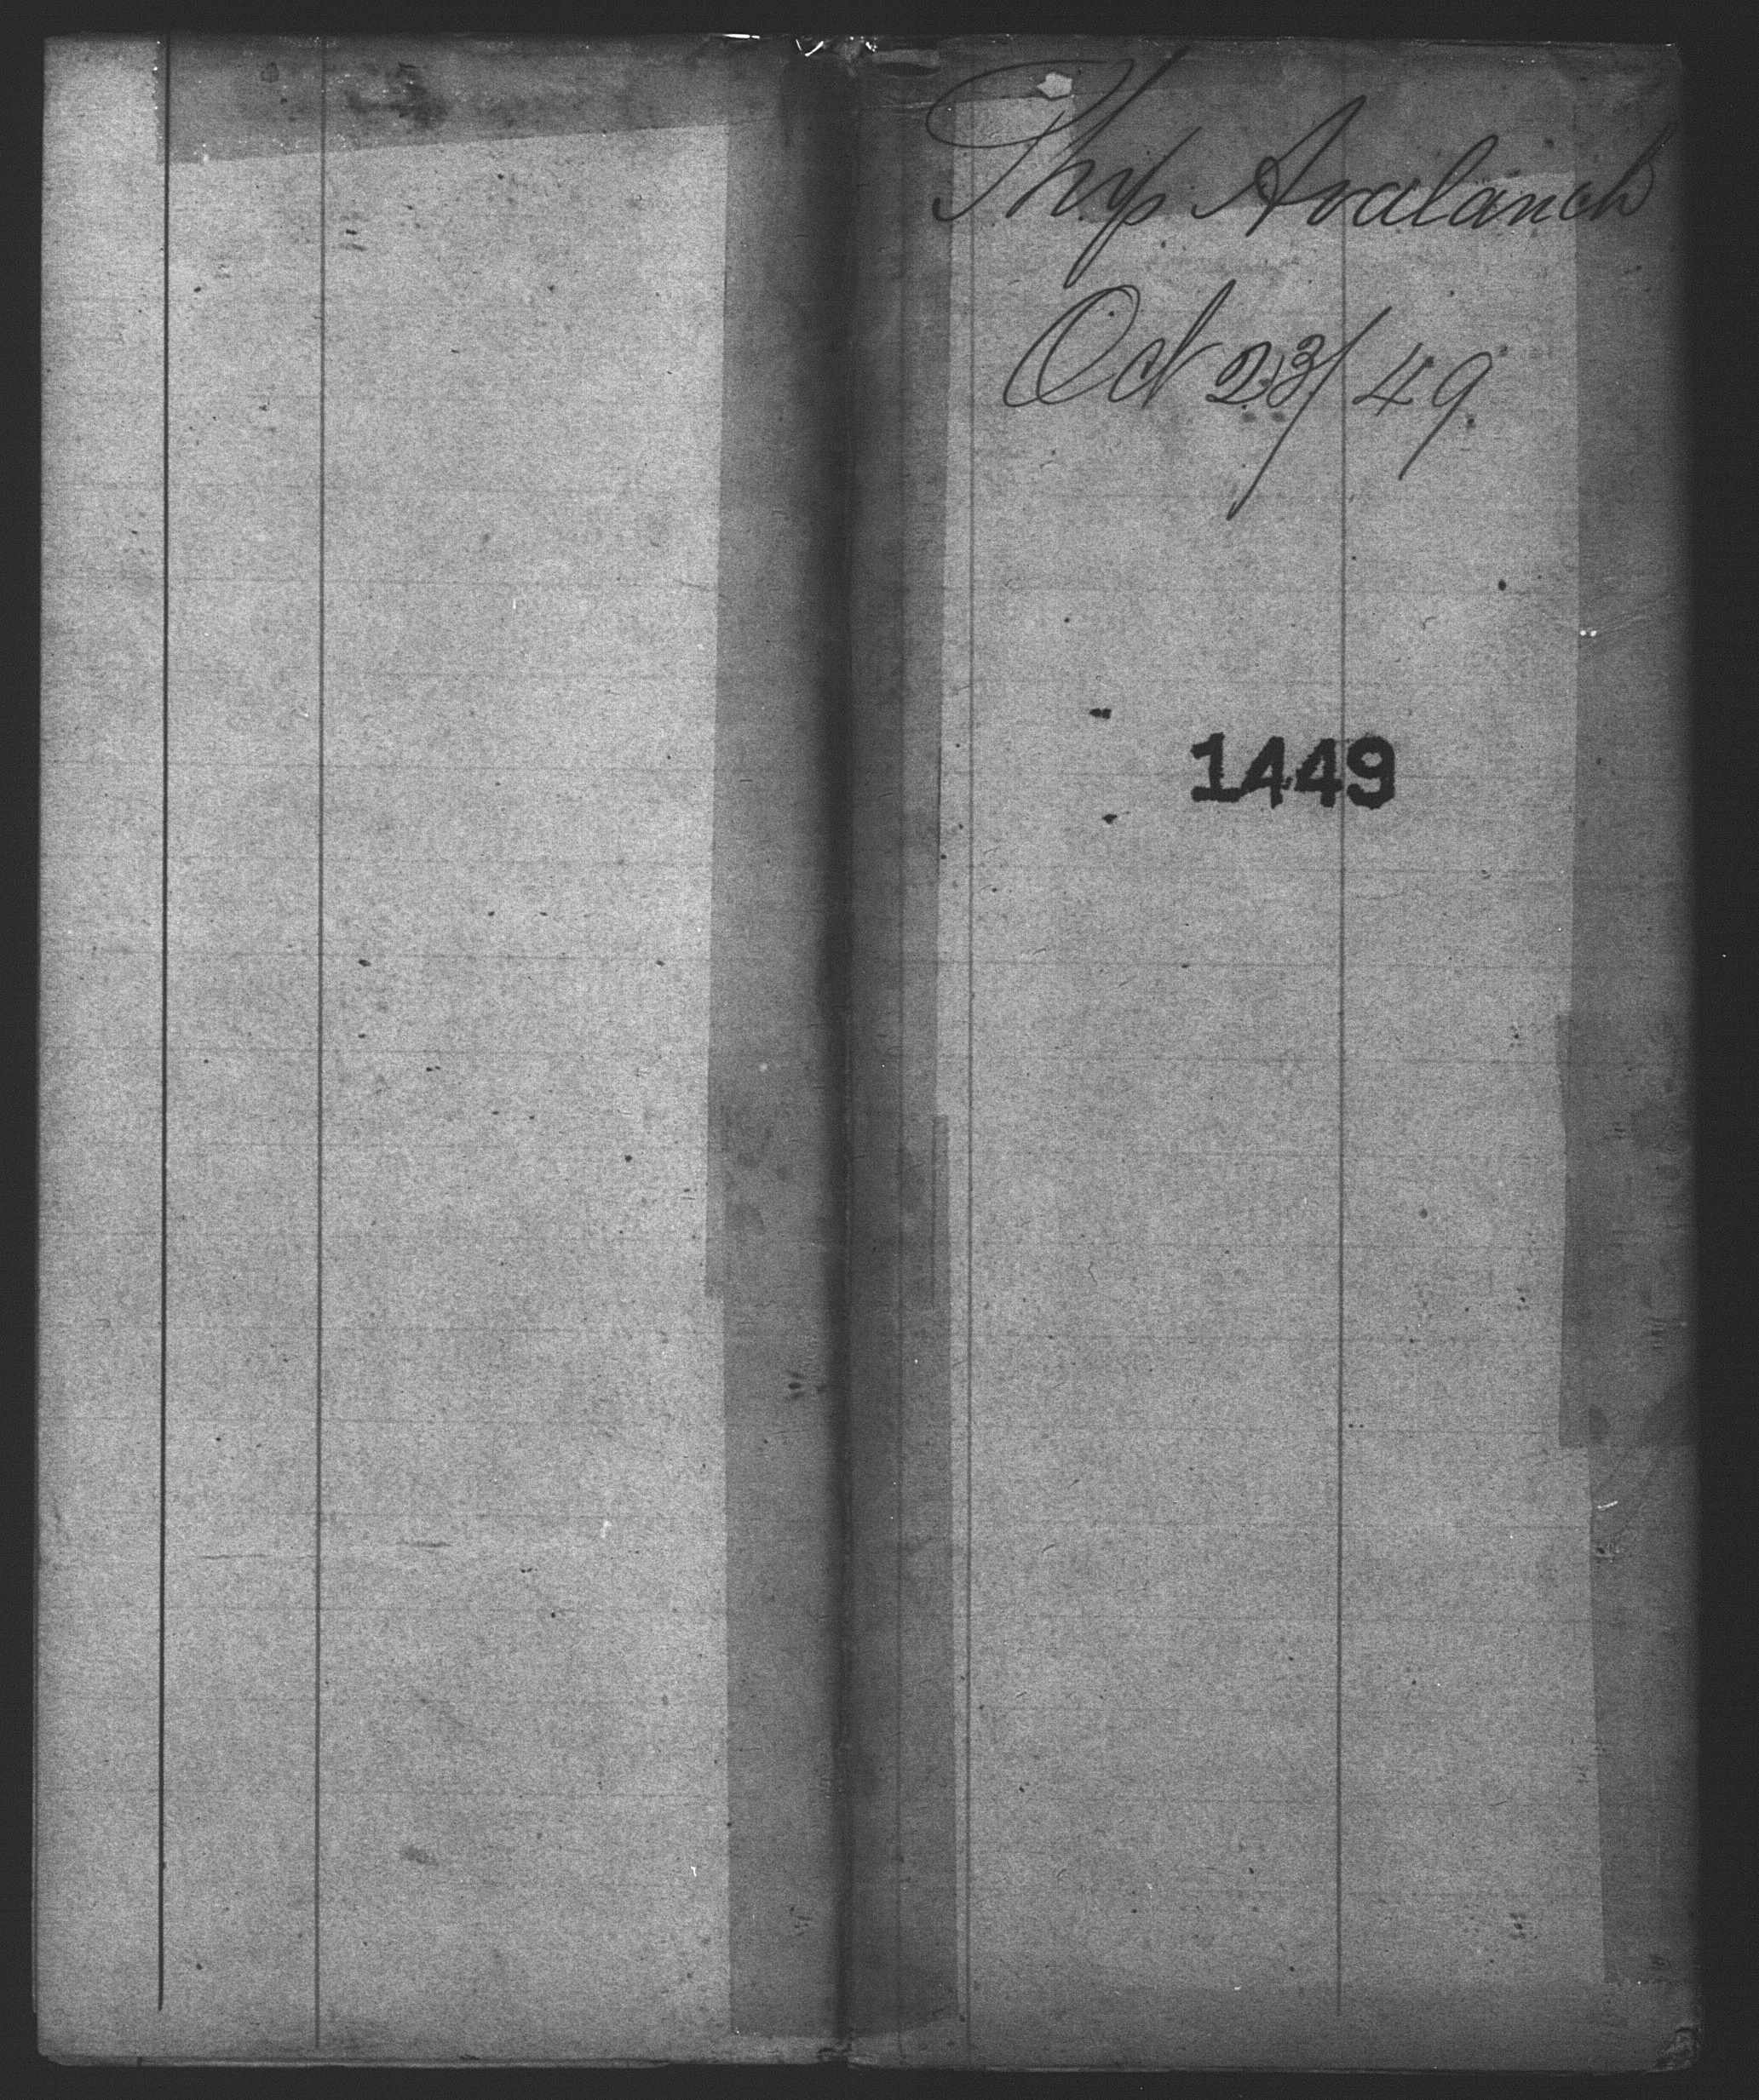 Ship Avalanch
Oct 23/49
1449